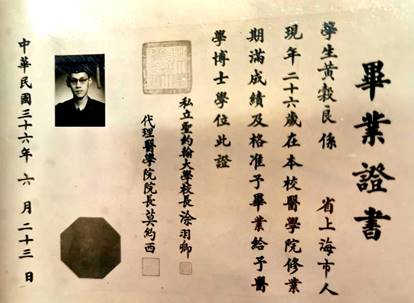 畢業證書
學生黃穀良係　省上海市人
現年二十六歲在本校醫學院修業
期滿成績及格准予畢業給予醫
學博士學位此證
私立聖約翰大學校長涂羽卿
代理醫學院院長莫約西
中華民國三十六年六月二十三日